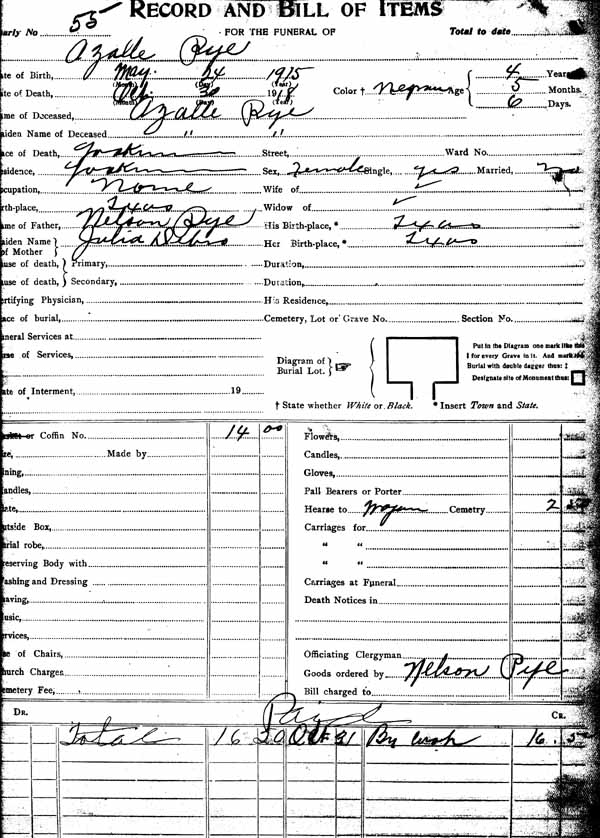 RECORD AND BILL OF ITEMS
arly No 55 FOR THE FUNERAL OF Total to date
Azalle Rye
te of Birth, May 24 1915
(Month) (Day) (Year)
te of Death, Oct. 30 1918 Color † Age 4 Years
(Month) (Day) (Year) 5 Months.
me of Deceased, Azalle Rye 6 Days.
aiden Name of Deceased " "
ce of Death, Street, Ward No.
sidence, Sex, Female Single, yes Married,
cupation, None Wife of ✓
rth-place, Texas Widow of ✓
me of Father, Nelson Rye His Birth-place, * Texas
aiden Name of Mother } Julia Her Birth-place, * Texas
use of death, } Primary, Duration,
use of death, } Secondary, Duration,
rtifying Physician, His Residence,
ace of burial, Cemetery, Lot or Grave No. Section No.
neral Services at
se of Services,
Diagram of Burial Lot. } ☞
Put in the Diagram one mark like this
I for every Grave in it. And mark
Burial with double dagger thus: ‡
Designate site of Monument thus:
ate of Interment, 19
† State whether White or Black. * Insert Town and State.
or Coffin No. 14 00 Flowers,
ze, Made by Candles,
ning, Gloves,
andles, Pall Bearers or Porter
ate, Hearse to Wagon Cemetry 2
utside Box, Carriages for
rial robe, " "
eserving Body with " "
ashing and Dressing Carriages at Funeral
aving, Death Notices in
usic,
rvices,
e of Chairs, Officiating Clergyman
urch Charges Goods ordered by Nelson Rye
emetery Fee, Bill charged to
DR. Paid CR.
Total 16 50 Oct 31 By cash 16